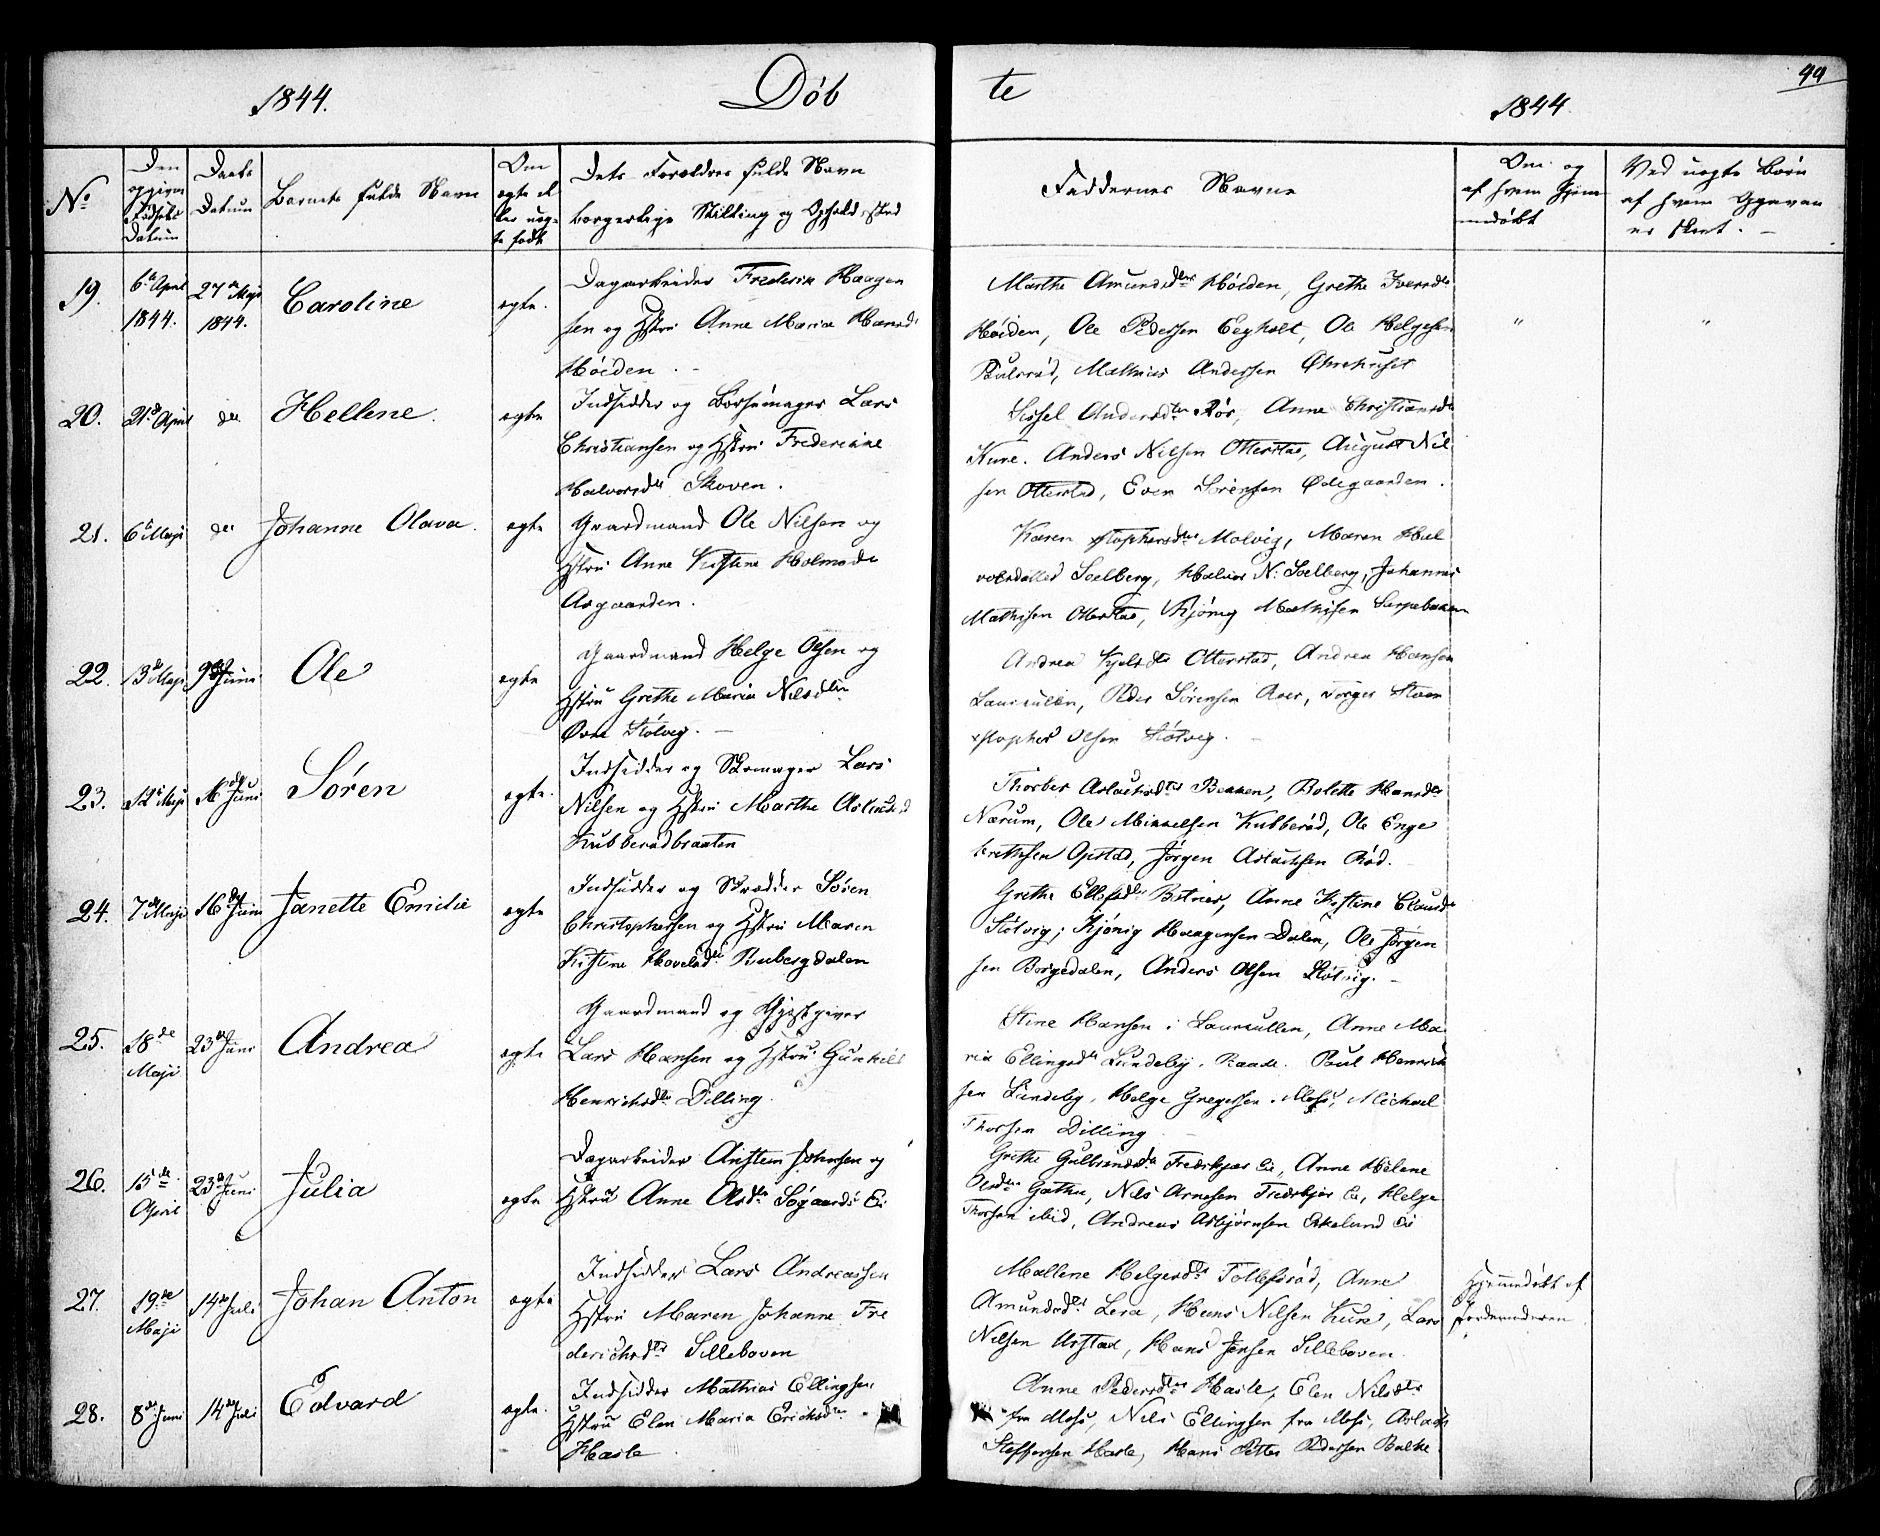 1844.
Döb
te
1844
No
Den opgivne Födsels Datum
Daabs Datum
Barnets fulde Navn
Om egte eller uegte födt
Dets Foreldres fulde Navn
borgerlige Stilling og Opholdssted
Faddernes Navne
Om og af hvem hjemmedöbt
Ved uegte Börn af hvem Opgaven er skeet. —
19.
6te April 1844.
27de Maji 1844.
Caroline
egte.
Dagarbeider Frederik Haagen
sen og Hstru Anne Maria Hansd.
Höiden. -
Marthe Amundsdtr Höiden, Grethe Iversdtr
Höiden, Ole Pedersen Eegholt, Ole Helgesen
Mathias Andersen
"
"
20.
21de April
do.
Hellene.
egte
Indsidder og Börsemager Lars
Christiansen og Hstru Frederikke
Halvorsdtr Skoven.
Sissel Andersdtr Rör, Anne Christiansdtr
Kure. Anders Nilsen Otterstad, August Nil
sen Otterstad, Even Sörensen Ödegaarden.
21.
6te Maji
do.
Johanne Olava.
egte
Gaardmand Ole Nilsen og
Hstru Anne Kistine Holmsdtr
Aagaarden.
Karen Molvig, Maren Hal
vorsdatter Soelberg, Halvor N. Soelberg, Johannes
Mathisen Otterstad, Kjönig Mathisen
22.
13de Maji
9de Juni
Ole
egte
Gaardmand Helge Olsen og
Hstru Grethe Maria Nilsdtr
Övre Stötvig. —
Andrea Kjelsdtr Otterstad, Andrea Hansen
Peder Sörensen
Olsen Stötvig. -
23.
12te Maji
Juni
Sören
egte.
Indsidder og Skomager Lars
Nilsen og Hstru Marthe Aslaksd
Kubberödbraaten
Aslaksdtr Bakken, Bolette Hansdtr
Nærum, Ole Mikkelsen Kubberöd, Ole Enge
brethsen Opstad, Jörgen Aslaksen Röd.
24.
7de Maji
16de Juni
Janette Emilie
egte
Indsidder og Skrædder Sören
Christophersen og Hstru Maren
Kistine Hovelsdtr Rubergdalen
Grethe Anne Kistine
Stötvig, Kjönig Haagensen Dalen, Ole Jörgen
sen Borgedalen, Anders Olsen Stötvig. -
25.
18de Maji
23de Juni
Andrea
egte
Gaardmand og Gjestgiver
Lars Hansen og Hstru Gunhild
Henriksdtr Dilling.
Stine Hansen i Laurkullen, Anne Ma
ria Ellingsdtr Lundeby, Raade. Poul Henrik
sen Lundeby, Helge Gregersen Moss, Michael
Thorsen Dilling
26.
15de April
23de Juni
Julia
egte
Dagarbeider Anstein Johnsen og
Hstru Anne Olsdtr Ei
Grethe Gulbrandsdtr Ei, Anne Helene
Olsdtr Nils Arnesen Ei, Helge
Thorsen ibid, Andreas Asbjörnsen Ekelund Ei
27.
19de Maji
14de Juli
Johan Anton
egte
Indsidder Lars Andreassen
Hstru Maren Johanne Fre
derichsdtr Sillebaven
Mallene Helgesdtr Tollefsröd, Anne
Amundsdtr Lera, Hans Nilsen Kure, Lars
Nilsen Hans Jensen Sillebaven.
Hjemmedöbt af
Jordemoderen
28.
8de Juni
14de Juli
Edvard
egte.
Indsidder Mathias Ellingsen
Hstru Elen Maria Eriksdtr
Hasle.
Anne Pedersdtr Hasle, Elen Nilsdtr
fra Moss, Nils Ellingsen fra Moss, Aslak
Steffensen Hasle, Hans Petter Pedersen